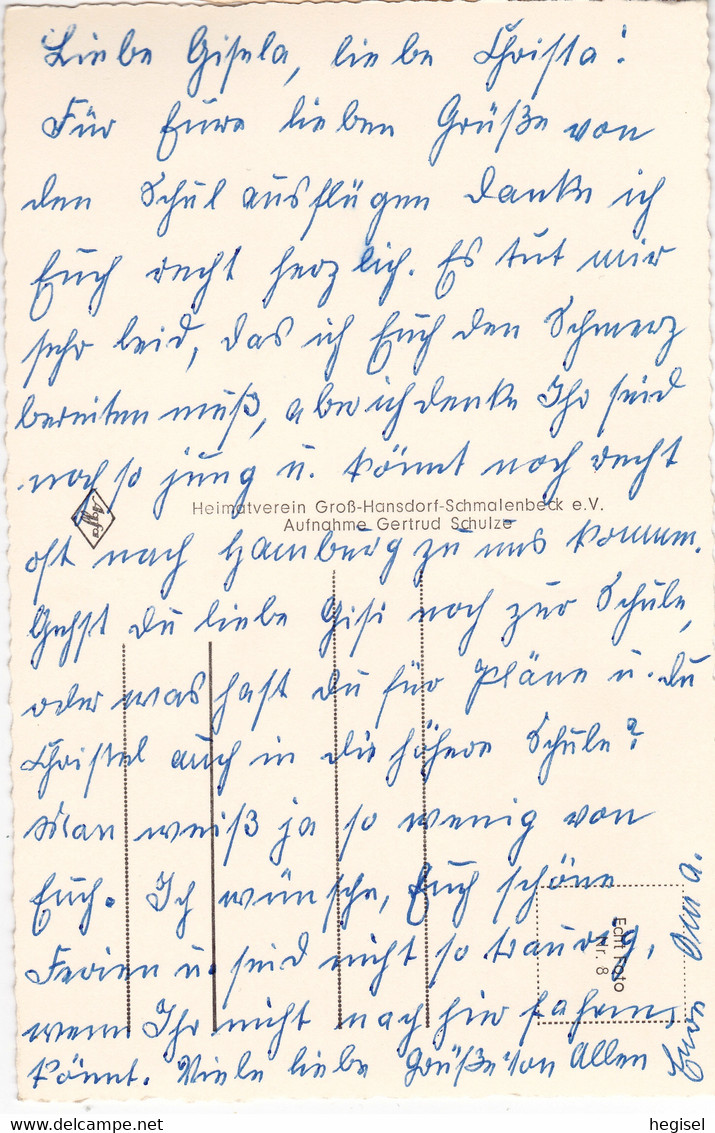 Liebe Gisela, liebe Christa!
Für Eure lieben Grüße von
den Schulausflügen danke ich
Euch recht herzlich. Es tut mir
sehr leid, das ich Euch den Schmerz
bereiten muß, aber ich denke Ihr seid
noch so jung u. könnt noch recht
Agfa
Heimatverein Groß-Hansdorf-Schmalenbeck e.V.
Aufnahme Gertrud Schulze
oft nach Hamburg zu uns komm.
Gehst Du liebe Gisi noch zur Schule,
oder was hast Du für Pläne u. Du
Christel auch in die höhere Schule?
Man weiß ja so wenig von
Euch. Ich wünsche, Euch schöne
Ferien u. seid nicht so traurig,
wenn Ihr nicht nach hier fahren,
könnt. Viele liebe Grüße von Allen
Eure Oma.
Echt Foto
Nr. 8
hegisel